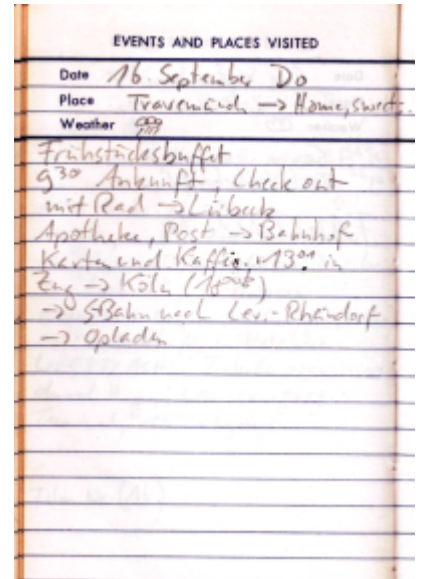 EVENTS AND PLACES VISITED
Date 16. September Do
Place Travemünde → Home, sweet
Weather
Frühstücksbuffet
9³⁰ Ankunft, Check out
mit Rad → Lübeck
Apotheke, Post → Bahnhof
Karten und Kaffee. 13⁰⁴ in
Zug → Köln
→ S Bahn nach Lev.-Rheindorf
→ Opladen